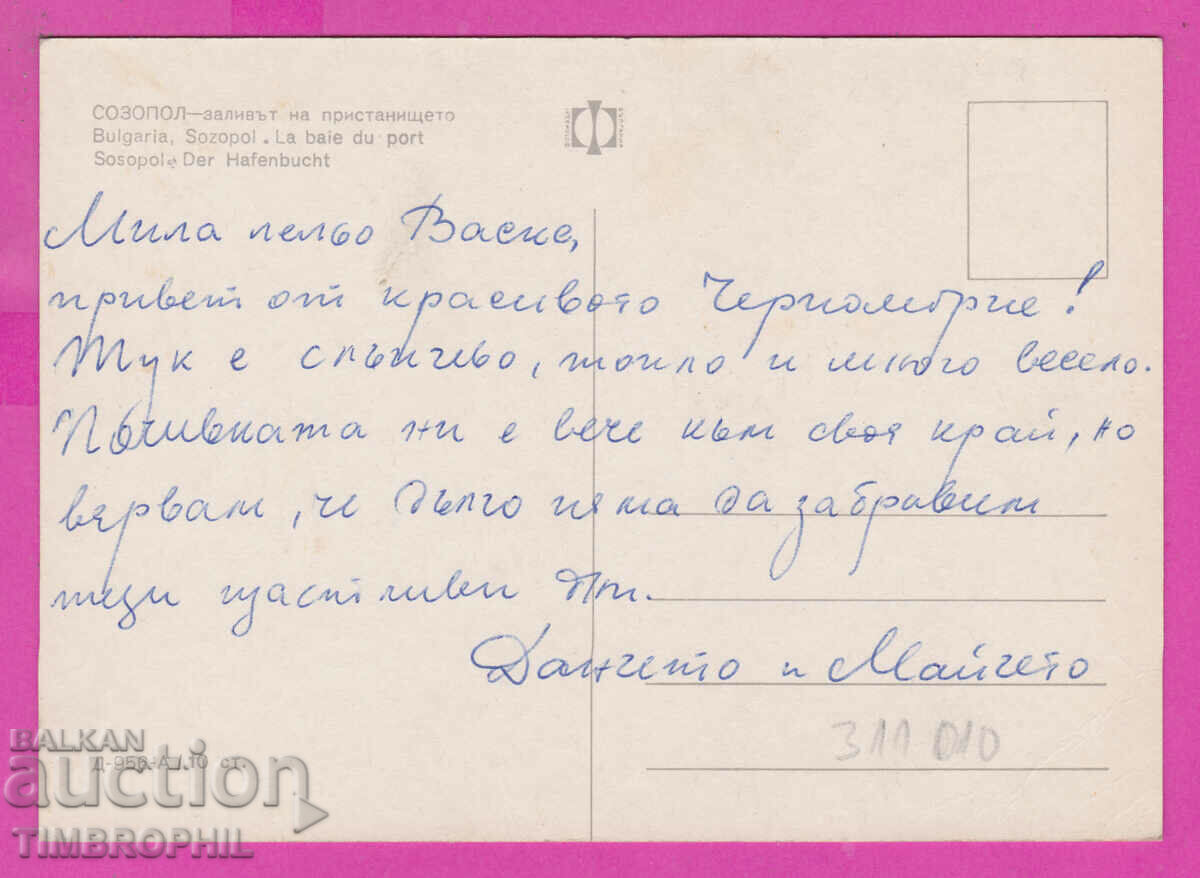 СОЗОПОЛ—заливът на пристанището
Bulgaria, Sozopol . La baie du port
Sosopol. Der Hafenbucht
Мила лельо Васке,
привет от красивото Черноморие!
Тук е слънчево, топло и много весело.
Почивката ни е вече към своя край, но
вярвам, че дълго няма да забравим
тези щастливи дни.
Данчето и Майчето
311010
Д-956-А 10 ст.
BALKAN
auction
TIMBROPHIL